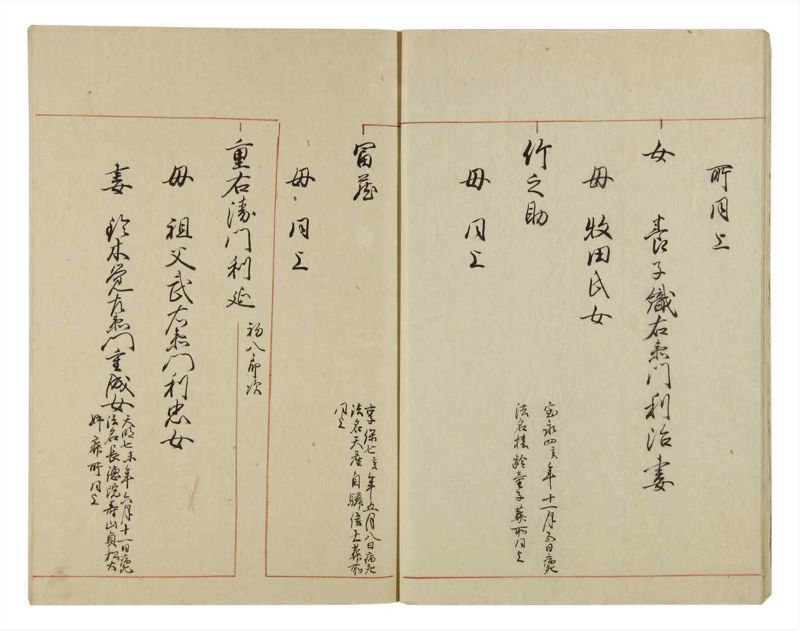 所同上
女 養子織右衛門利治妻
母 牧田氏女
竹之助
宝永四亥年十一月五日病死
法名桂齢童子葬所同上
母 同上
冨蔵
享保七寅年五月八日病死
法名天産自歸信士葬所
同上
母 同上
重右衛門利延
初八郎次
母 祖父武右衛門利忠女
妻 鈴木覚右衛門重成女
天明七未年六月十一日病死
法名長徳院寿山貞松大
姉葬所同上